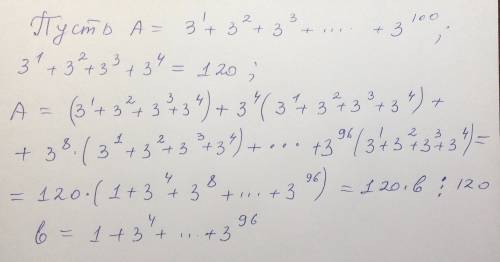 Пусть A = 3¹ + 3² + 3³ + ..... + 3¹⁰⁰;
3¹ + 3² + 3³ + 3⁴ = 120;
A = (3¹ + 3² + 3³ + 3⁴) + 3⁴(3¹ + 3² + 3³ + 3⁴) +
+ 3⁸·(3¹ + 3² + 3³ + 3⁴) + ... + 3⁹⁶(3¹ + 3² + 3³ + 3⁴) =
= 120·(1 + 3⁴ + 3⁸ + ... + 3⁹⁶) = 120·b ⋮ 120
b = 1 + 3⁴ + ... + 3⁹⁶